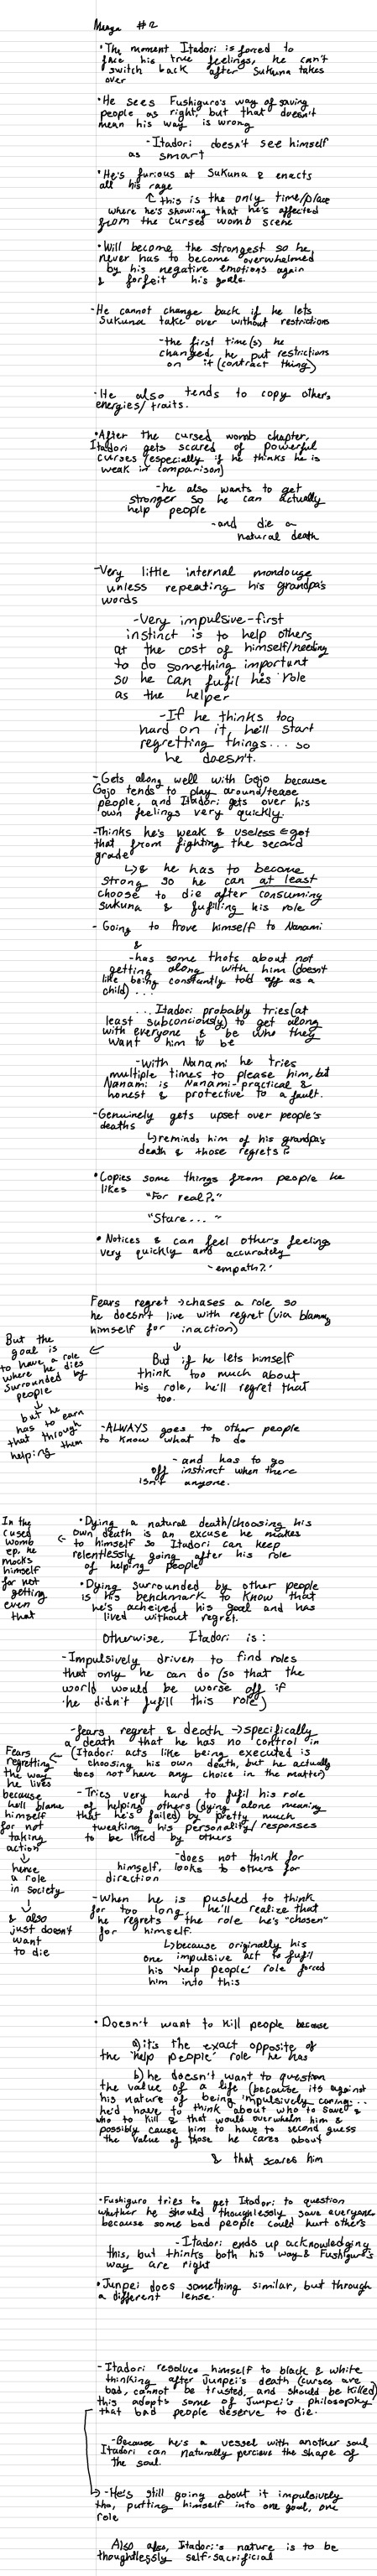 Manga #2
•The moment Itadori is forced to
face his true feelings, he can't
switch back after Sukuna takes
over
•He sees Fushiguro's way of saving
people as right, but that doesn't
mean his way is wrong
-Itadori doesn't see himself
as smart
•He's furious at Sukuna & enacts
all his rage
↑ this is the only time/place
where he's showing that he's affected
from the cursed womb scene
•Will become the strongest so he
never has to become overwhelmed
by his negative emotions again
& forfeit his goals.
-He cannot change back if he lets
Sukuna take over without restrictions
-the first time(s) he
changed, he put restrictions
on it (contract thing)
•He also tends to copy others
energies/traits.
•After the cursed womb chapter,
Itadori gets scared of powerful
curses (especially if he thinks he is
weak in comparison)
-he also wants to get
stronger so he can actually
help people
-and die a
natural death
-Very little internal monolouge
unless repeating his grandpa's
words
-Very impulsive-first
instinct is to help others
at the cost of himself/needing
to do something important
so he can fufil his role
as the helper
-If he thinks too
hard on it, he'll start
regretting things... so
he doesn't.
-Gets along well with Gojo because
Gojo tends to play around/tease
people, and Itadori gets over his
own feelings very quickly.
-Thinks he's weak & useless ← got
that from fighting the second
grade
↳& he has to become
strong so he can at least
choose to die after consuming
Sukuna & fufilling his role
- Going to Prove himself to Nanami
&
-has some thots about not
getting along with him (doesn't
like being constantly told off as a
child)...
...Itadori probably tries (at
least subconciously) to get along
with everyone & be who they
want him to be
-with Nanami he tries
multiple times to please him, but
Nanami is Nanami-practical &
honest & protective to a fault.
-Genuinely gets upset over people's
deaths
↳reminds him of his grandpa's
death & those regrets?
•Copies some things from people he
likes
"For real?"
"Stare... ~"
•Notices & can feel other's feelings
very quickly and accurately
-empath?
Fears regret → chases a role so
he doesn't live with regret (via blaming
himself for inaction)
↓
But if he lets himself
think too much about
his role, he'll regret that
too.
←
But the
goal is
to have a role
where he dies
surrounded by
people
↓
but he
has to earn
that through
helping them
-ALWAYS goes to other people
to know what to do
-and has to go
off instinct when there
isn't anyone.
•Dying a natural death/choosing his
own death is an excuse he makes
to himself so Itadori can keep
relentlessly going after his role
of helping people
←
In the
cused
womb
ep, he
mocks
himself
for not
getting
even
that
•Dying surrounded by other people
is his benchmark to know that
he's acheived his goal and has
lived without regret.
Otherwise, Itadori is:
-Impulsively driven to find roles
that only he can do (so that the
world would be worse off if
he didn't fufill this role)
-fears regret & death → specifically
a death that he has no control in
(Itadori acts like being executed is
choosing his own death, but he actually
does not have any choice in the matter)
←
Fears
regretting
the way
he lives
because
he'll blame
himself
for not
taking
action
↓
hence
a role
in society
↓
& also
just doesn't
want
to die
-Tries very hard to fufil his role
of helping others (dying alone meaning
that he's failed) by pretty much
tweaking his personality/responses
to be liked by others
-does not think for
himself, looks to others for
direction
-when he is pushed to think
for too long, he'll realize that
he regrets the role he's "chosen"
for himself.
↳because originally his
one impulsive act to fufil
his 'help people' role forced
him into this
•Doesn't want to kill people because
a) it's the exact opposite of
the 'help people' role he has
b) he doesn't want to question
the value of a life (because its against
his nature of being impulsively caring...
he'd have to think about who to save &
who to kill & that would overwhelm him &
possibly cause him to have to second guess
the value of those he cares about
& that scares him
•Fushiguro tries to get Itadori to question
whether he should thoughtlessly save everyone
because some bad people could hurt others
-Itadori ends up acknowledging
this, but thinks both his way & Fushiguro's
way are right
•Junpei does something similar, but through
a different lense.
-Itadori resolves himself to black & white
thinking after Junpei's death (curses are
bad, cannot be trusted, and should be killed)
this adopts some of Junpei's philosophy
that bad people deserve to die.
-Because he's a vessel with another soul,
Itadori can naturally percieve the shape of
the soul.
→ -He's still going about it impulsively
tho, putting himself into one goal, one
role
Also, Itadori's nature is to be
thoughtlessly self-sacrificial